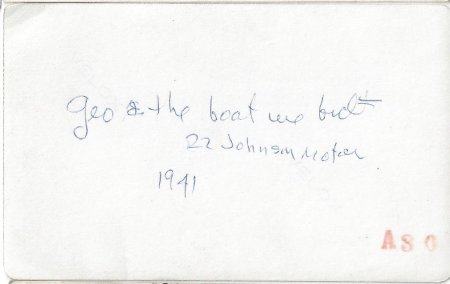 Geo & the boat we built
22 Johnson Motor
1941
A80